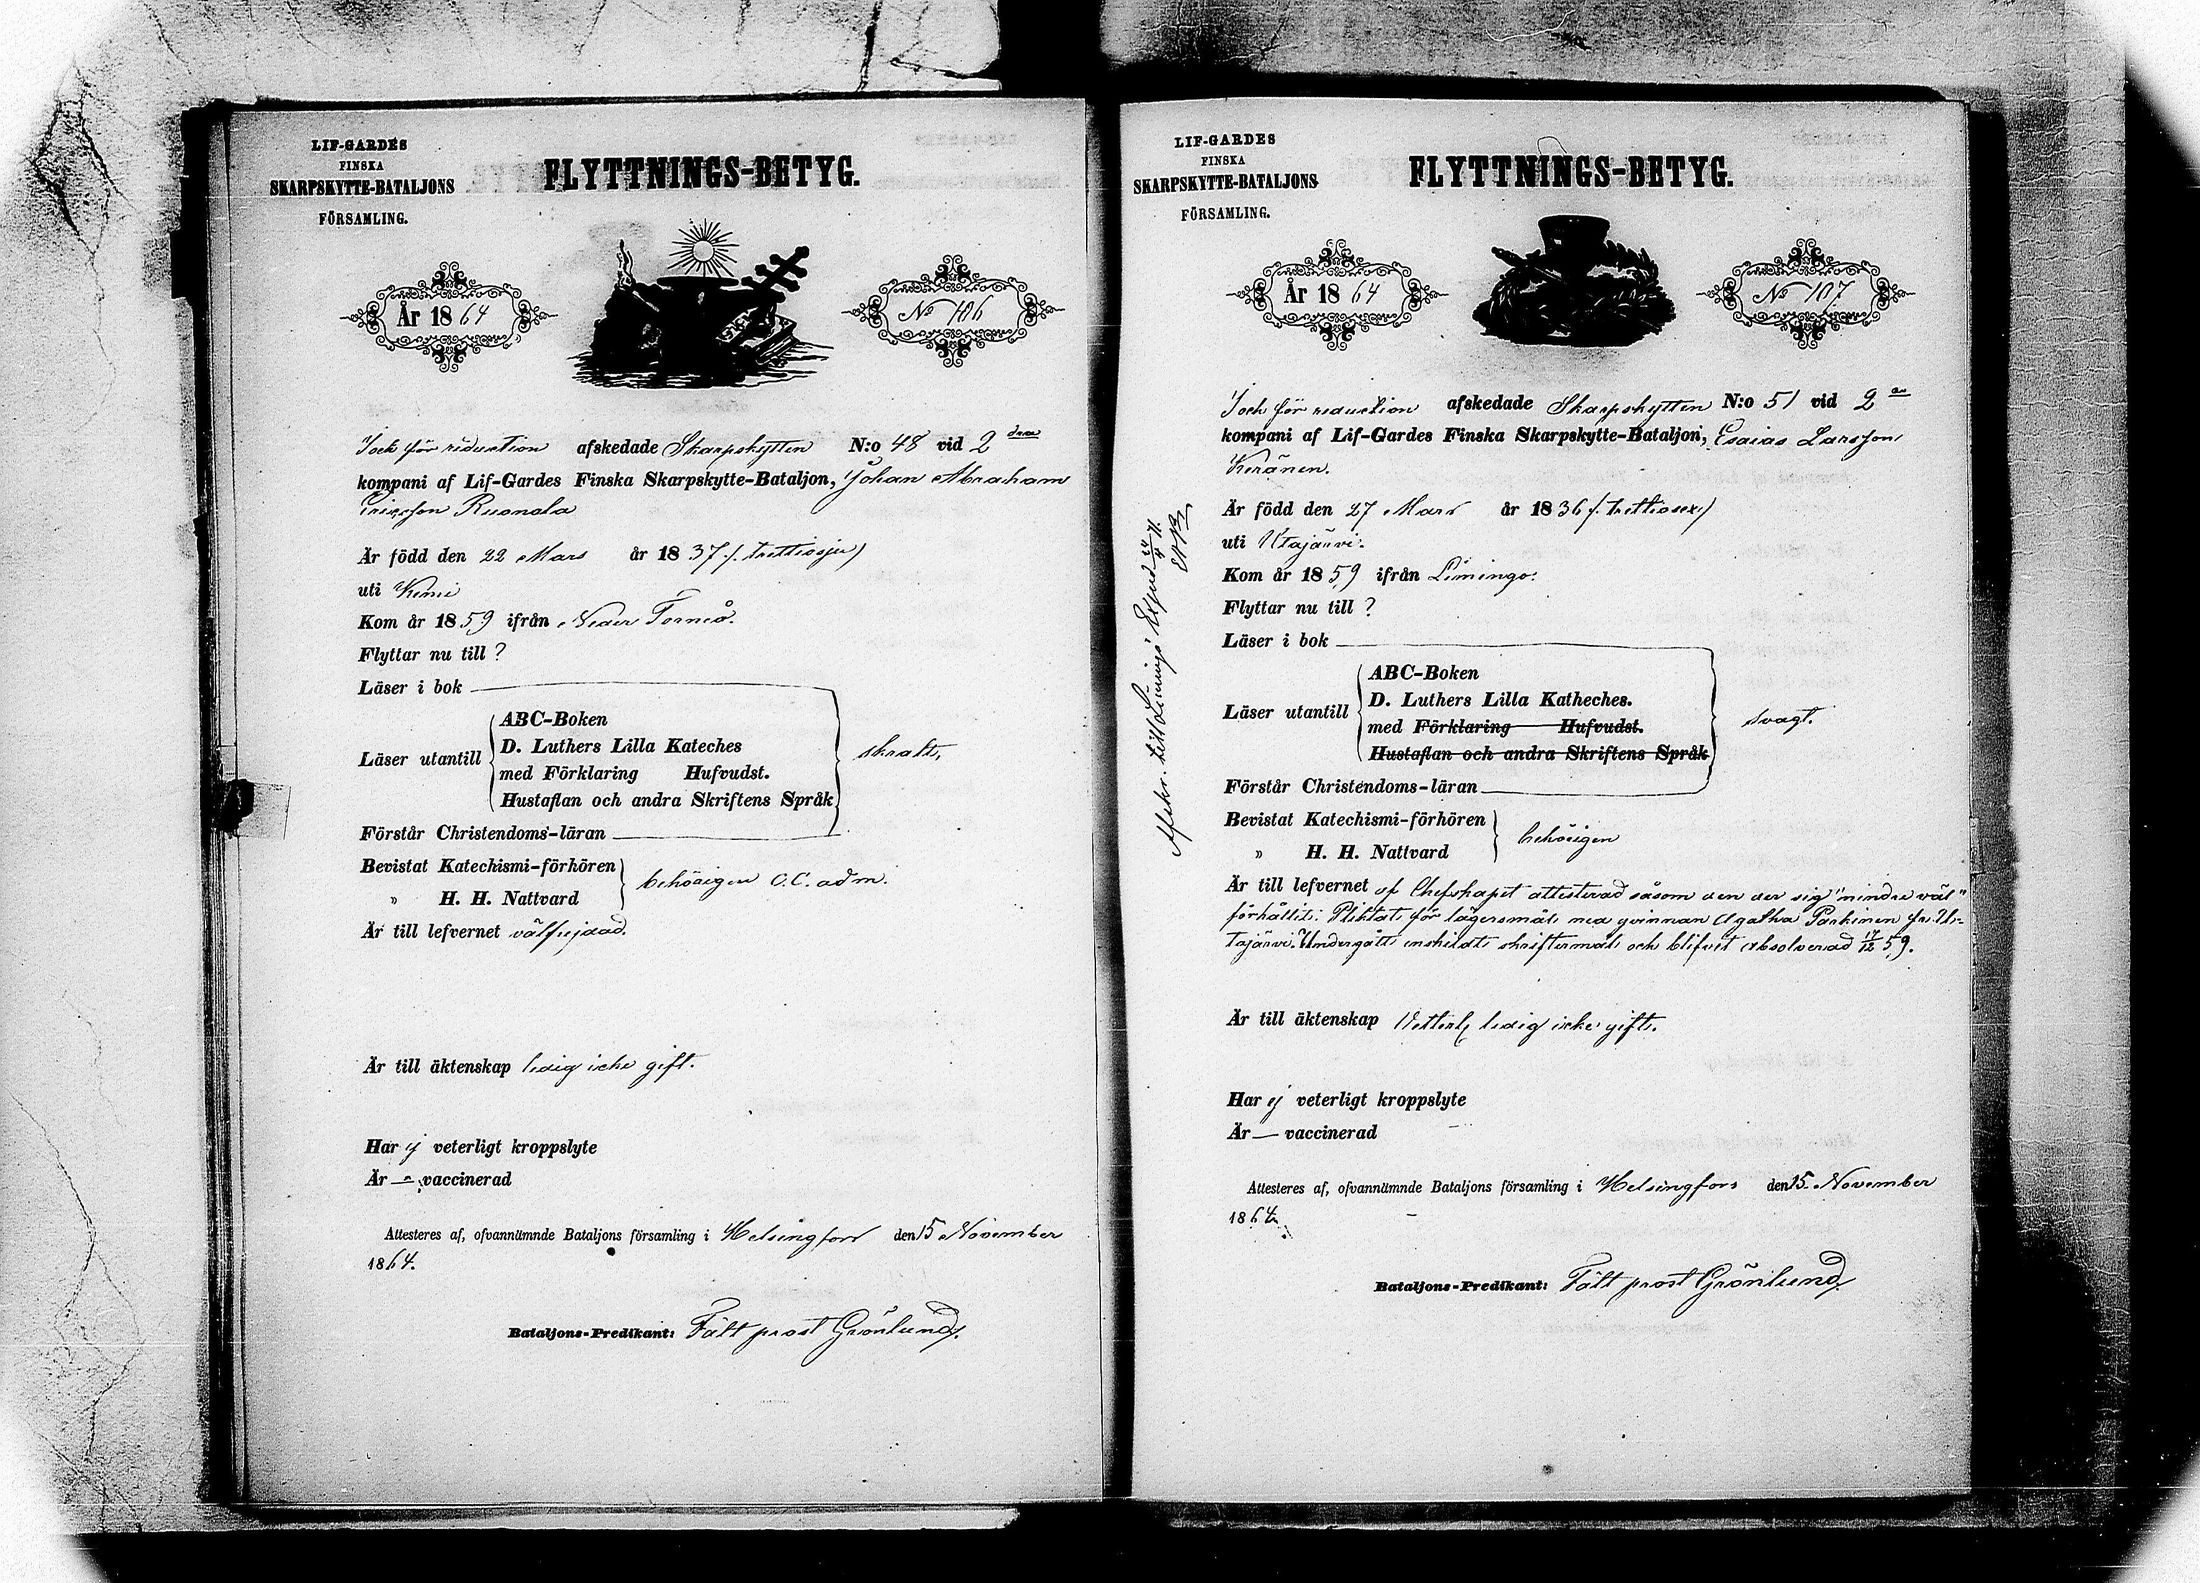 LIF-GARDES
FINSKA
SKARPSKYTTE-BATALJONS
FÖRSAMLING.
FLYTTNINGS-BETYG.
År 1864
No 106
för reduction afskedade Skarpskytten N:o 48 vid 2 dra
kompani af Lif-Gardes Finska Skarpskytte-Bataljon, Johan Abraham
Ericsson Ruonala
Är född den 22 Mars år 1837 /: trettiosju /
uti Kemi
Kom år 1859 ifrån Neder Torneå.
Flyttar nu till ?
Läser i bok
Läser utantill
ABC-Boken
D. Luthers Lilla Kateches
med Förklaring Hufvudst.
Hustaflan och andra Skriftens Språk
Förstår Christendoms-läran
Bevistat Katechismi-förhören
" H. H. Nattvard
behörigen O.C. adm.
Är till lefvernet välfrejdad.
Är till äktenskap ledig icke gift.
Har ej veterligt kroppslyte
Är — vaccinerad
Attesteres af, ofvannämnde Bataljons församling i Helsingfors den 15 November
1864.
Bataljons-Predikant: Fält prost Grönlund.
LIF-GARDES
FINSKA
SKARPSKYTTE-BATALJONS
FÖRSAMLING.
FLYTTNINGS-BETYG.
År 1864
No 107
för reduction afskedade Skarpskytten N:o 51 vid 2
kompani af Lif-Gardes Finska Skarpskytte-Bataljon, Esaias Larsson
Keränen.
Är född den 27 Mars år 1836 /: trettiosex /
uti Utajärvi.
Kom år 1859 ifrån Limingo.
Flyttar nu till ?
Läser i bok
Läser utantill
ABC-Boken
D. Luthers Lilla Katheches.
med Förklaring Hufvudst.
Hustaflan och andra Skriftens Språk
svagt.
Förstår Christendoms-läran
Bevistat Katechismi-förhören
" H. H. Nattvard
behörigen
Är till lefvernet af Chefskapet attesterad såsom den der sig "mindre väl"
förhållit: Pliktat för lägersmål med qvinnan Agatha Parkinen fr. U-
tajärvi. Undergått enskildt skriftermål och blifvit absolverad 17/12 59.
Är till äktenskap Vetterl. ledig icke gift.
Har ej veterligt kroppslyte
Är — vaccinerad
Attesteres af, ofvannämnde Bataljons församling i Helsingfors den 15. November
1864
Bataljons-Predikant: Fält prost Grönlund.
till Limingo